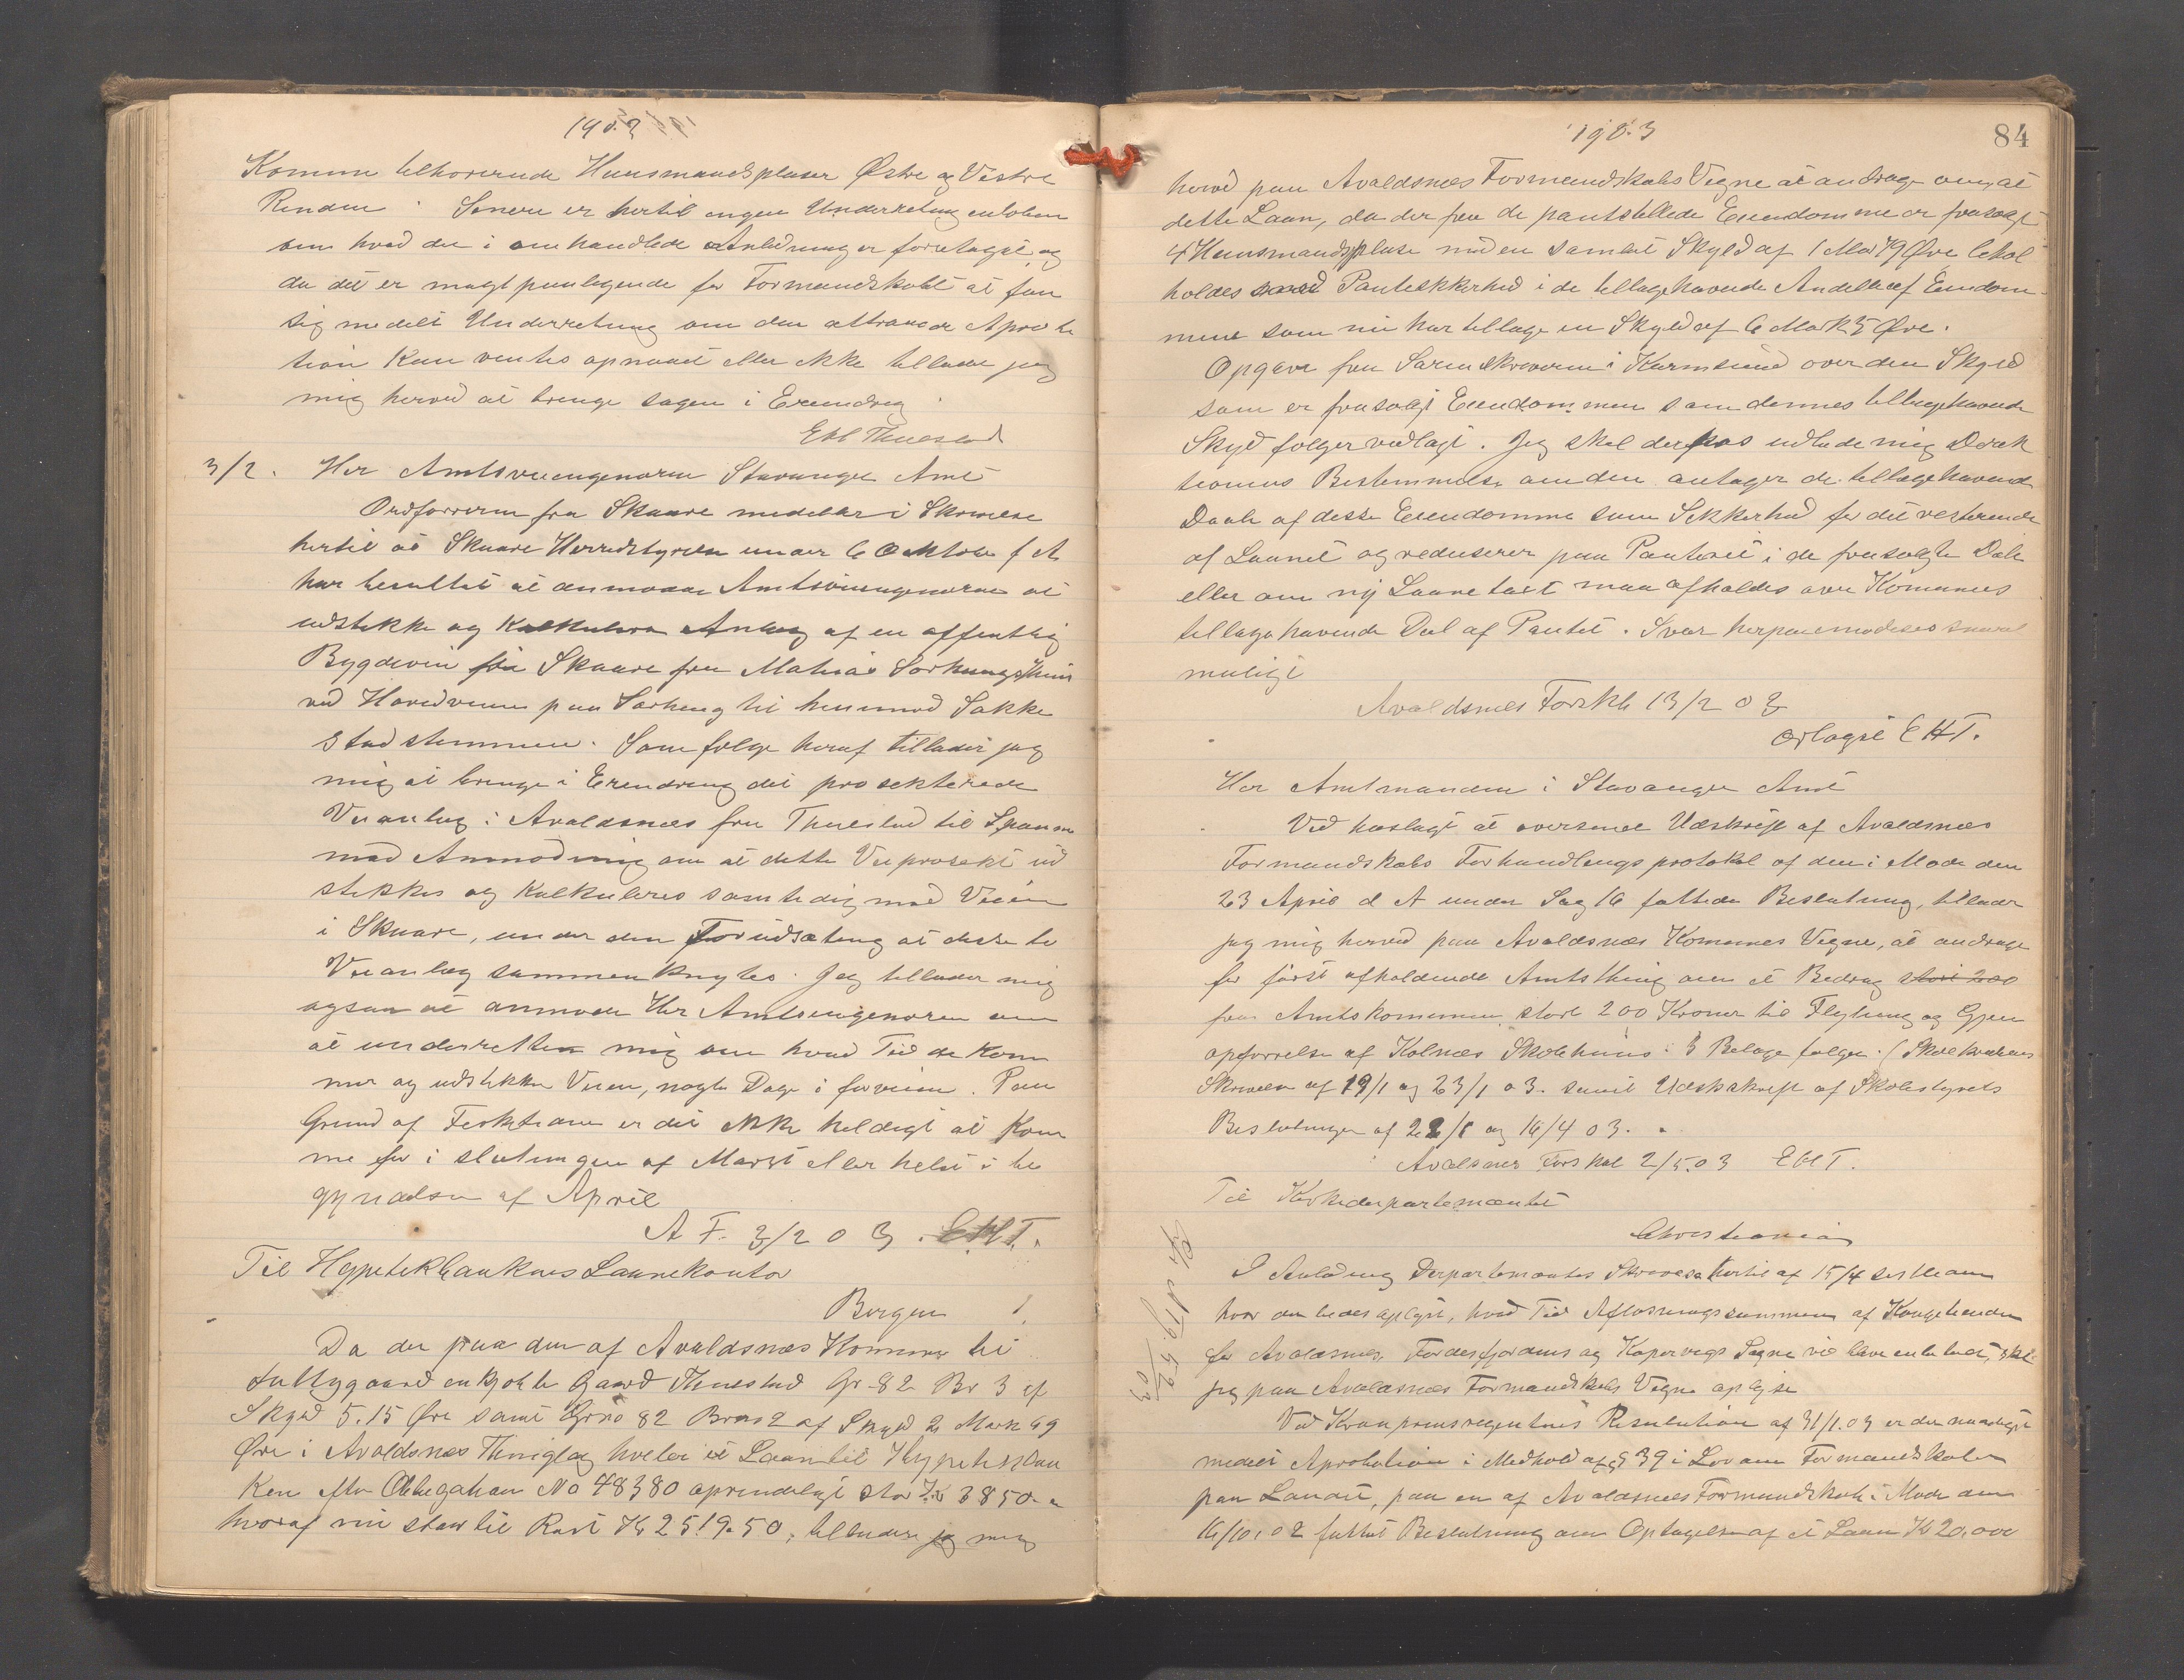 1903
Komune tilhørende Huusmandsplaser Østre og Vestre
Renden. Senere er hertil ingen Underretning indløben
om hvad der i omhandlede Anledning er foretaget og
da det er magtpaaliggende for Formandskabet at faa
sig medelt Underretning om den attraaede Aproba
tion kan ventes opnaaet eller ikke tillader jeg
mig herved at bringe sagen i Erendring.
EH Thuestad
3/2. Her Amtsveiingeniøren Stavanger Amt
Ordføreren fra Skaare medeler i Skrivelse
hertil at Skaare Herredstyrelse under 6 Oktober f A
har besluttet at anmode Amtsveiingeniøren at
udstikke og Kalkulere Anlæg af en offentlig
Bygdevei fra Skaare fra Mathias Sørhaugs Huus
ved Hovedveien paa Sørhaug til henimod Sakke
stadstemmen. Som følge heraf tillader jeg
mig at bringe i Erendring det prosekterede
Veianlæg i Avaldsnes fra Thuestad til Spanne
med Anmodning om at dette Veiprosekt ud
stikkes og Kalkuleres samtidig med Veien
i Skaare, under den Forudsætning at disse to
Veianlæg sammenknytes. Jeg tillader mig
ogsaa at anmode Her Amtsingeniøren om
at underrette mig om hvad Tid de kom
mer og udstikker Veien, nogle Dage i forveien. Paa
Grund af Fisketiden er det ikke heldigt at kom
me før i slutningen af Marst eller helst i be
gyndelsen af April
A F. 3/2 03. EHT.
Til Hypotekbankens Laanekontor
Bergen
Da der paa den af Avaldsnes Komune til
Fattiggaard enkjøbte Gaard Thuestad Gr. 82 Br 3 af
Skyld 5.15 Øre samt Grno 82 Brno 2 af Skyld 2 Mark 49
Øre i Avaldsnes Thinglag hviler et Laan til Hypotekban
ken efter Obligation No 48380 oprindeligt stor Kr 3850.
hvoraf nu staar til Rest Kr 2519.50, tillader jeg mig
1903
84
herved paa Avaldsnes Formandskabs Vegne at andrage om, at
dette Laan, da der fra de pantstillede Eiendomme er frasolgt
4 Huusmandsplase med en samlet Skyld af 1 Mark 79 Øre bebol
holdes med Pantesikkerhed i de tilbagehavende Andele af Eiendom
mene som nu har tilbage en Skyld af 6 Mark 5 Øre.
Opgave fra Sorenskriveren i Karmsund over den Skyld
som er frasolgt Eiendommen som dennes tilbagehavende
Skyld følger vedlagt. Jeg skal derfor udbede mig Direk
tionens Bestemmelse om den antager de tilbagehavende
Deele af disse Eiendomme som Sikkerhed for det resterende
af Laanet og reduserer paa Panteret i de frasolgte Dele
eller om ny Laanetaxt maa afholdes over Komunens
tilbagehavende Deel af Pantet. Svar herpaa imødesees snarest
muligt
Avaldsnes Forskb 13/2 03
ærbøgst EHT.
Her Amtmanden i Stavanger Amt
Ved hoslagt at oversende Udskrift af Avaldsnes
Formandskabs Forhandlingsprotokol af den i Møde den
23 April d A under Sag 16 fattede Beslutning, tillader
jeg mig herved paa Avaldsnes Komunes Vegne, at andrage
for først afholdende Amtsthing om et Bedrag stort 200
fra Amtskomunen stort 200 Kroner til Flytning og Gjen
opførelse af Kolnes Skolehuus. 3 Bilage følger. (Skolekredsens
Skrivelse af 19/1 og 23/1 03. samt Udskrift af Skolestyrets
Beslutninger af 22/1 og 16/4 03.
Avaldsnes Forskab 2/5.03 EHT.
Til Kirkedepartementet
Christiania
I Anledning Departementes Skrivelse hertil af 15/4 sistleden
hvor der bedes oplyst, hvad Tid Afløsningssummen af Kongetienden
for Avaldsnes, Førdesfjordens og Kopervigs Sogne vil blive indbetalt, skal
jeg paa Avaldsnes Formandskabs Vegne oplyse
Ved Kronprinsregentens Resolution af 31/1.03 er der naadigst
medelt Aprobation i Medhold af § 39 i Lov om Formandskaber
paa Landet, paa en af Avaldsnes Formandskab i Møde den
16/10.02 fattet Beslutning om Optagelse af et Laan Kr 20.000